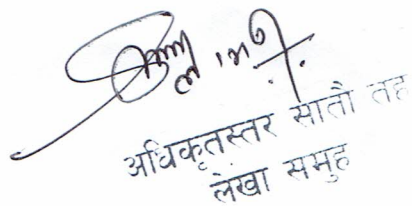 अधिकृतस्तर सातौ तह
लेखा समुह